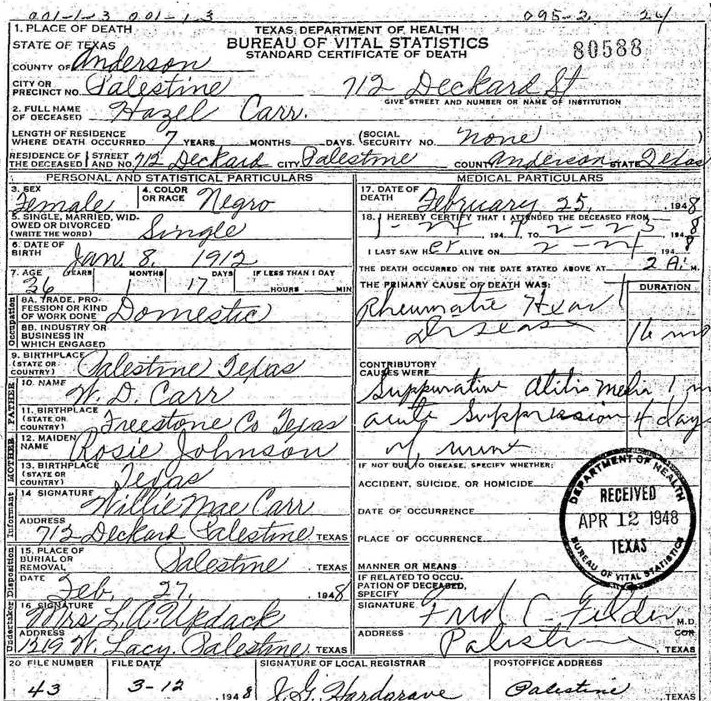 001-1-3 001-1-3 095-2 24
TEXAS DEPARTMENT OF HEALTH
BUREAU OF VITAL STATISTICS
STANDARD CERTIFICATE OF DEATH
80588
1. PLACE OF DEATH
STATE OF TEXAS
COUNTY OF Anderson
CITY OR PRECINCT NO. Palestine 712 Deckard St
GIVE STREET AND NUMBER OR NAME OF INSTITUTION
2. FULL NAME OF DECEASED Hazel Carr.
LENGTH OF RESIDENCE WHERE DEATH OCCURRED 7 YEARS MONTHS DAYS. (SOCIAL SECURITY NO. none )
RESIDENCE OF THE DECEASED STREET AND NO. 712 Deckard CITY Palestine COUNTY Anderson STATE Texas
PERSONAL AND STATISTICAL PARTICULARS
3. SEX Female
4. COLOR OR RACE Negro
5. SINGLE, MARRIED, WIDOWED OR DIVORCED (WRITE THE WORD) Single
6. DATE OF BIRTH Jan 8, 1912
7. AGE 36 YEARS 1 MONTHS 17 DAYS IF LESS THAN 1 DAY HOURS MIN
Occupation
8A. TRADE, PROFESSION OR KIND OF WORK DONE Domestic
8B. INDUSTRY OR BUSINESS IN WHICH ENGAGED
9. BIRTHPLACE (STATE OR COUNTRY) Palestine Texas
FATHER
10. NAME W. D. Carr
11. BIRTHPLACE (STATE OR COUNTRY) Freestone Co Texas
MOTHER
12. MAIDEN NAME Rosie Johnson
13. BIRTHPLACE (STATE OR COUNTRY) Texas
Informant
14 SIGNATURE Willie Mae Carr
ADDRESS 712 Deckard Palestine TEXAS
Undertaker Disposition
15. PLACE OF BURIAL OR REMOVAL Palestine TEXAS
DATE Feb. 27, 1948
16 SIGNATURE Mrs L. A. Updack
ADDRESS 1319 W. Lacy, Palestine TEXAS
MEDICAL PARTICULARS
17. DATE OF DEATH February 25, 1948
18. I HEREBY CERTIFY THAT I ATTENDED THE DECEASED FROM
1-24 1947 TO 2-25 1948
I LAST SAW HER ALIVE ON 2-24 1948
THE DEATH OCCURRED ON THE DATE STATED ABOVE AT 2 A. M.
THE PRIMARY CAUSE OF DEATH WAS: DURATION
Rheumatic Heart
Disease 16 mo
CONTRIBUTORY CAUSES WERE
Suppurative Otitis Media 1 m
acute suppression 4 days
of urine
IF NOT DUE TO DISEASE, SPECIFY WHETHER:
ACCIDENT, SUICIDE, OR HOMICIDE
DATE OF OCCURRENCE
PLACE OF OCCURRENCE
MANNER OR MEANS
IF RELATED TO OCCUPATION OF DECEASED, SPECIFY
DEPARTMENT OF HEALTH
RECEIVED
APR 12 1948
TEXAS
BUREAU OF VITAL STATISTICS
SIGNATURE Fred C. Felder M.D. COR
ADDRESS Palestine TEXAS
20 FILE NUMBER FILE DATE SIGNATURE OF LOCAL REGISTRAR POSTOFFICE ADDRESS
43 3-12 1948 J. G. Hardgrave Palestine TEXAS